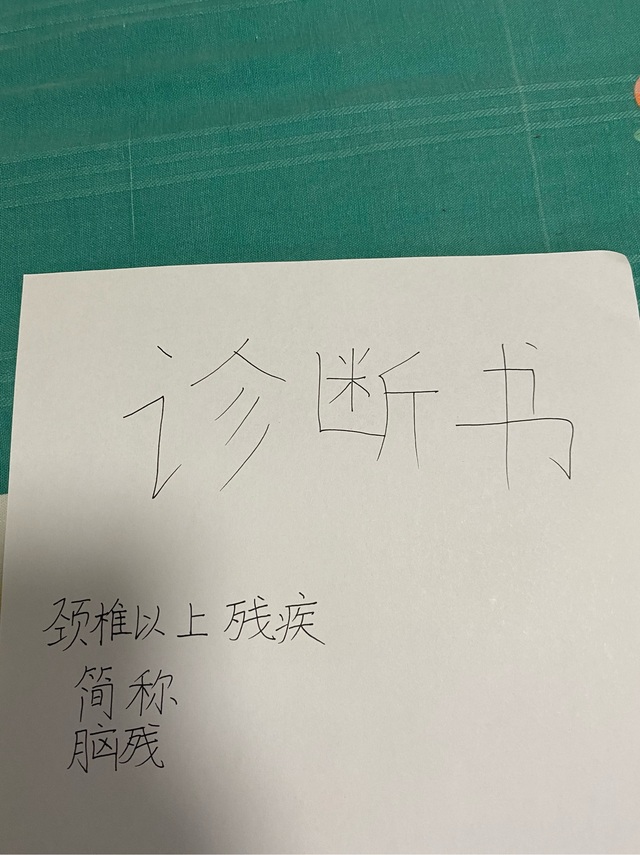 诊断书
颈椎以上残疾
简称
脑残